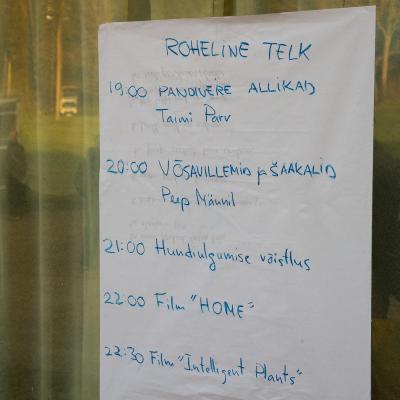 ROHELINE TELK
19:00 PANDIVERE ALLIKAD
Taimi Parv
20:00 VÕSAVILLEMID ja ŠAAKALID
Peep Männil
21:00 Hundiulgumise võistlus
22:00 Film "HOME"
22:30 Film "Intelligent Plants"